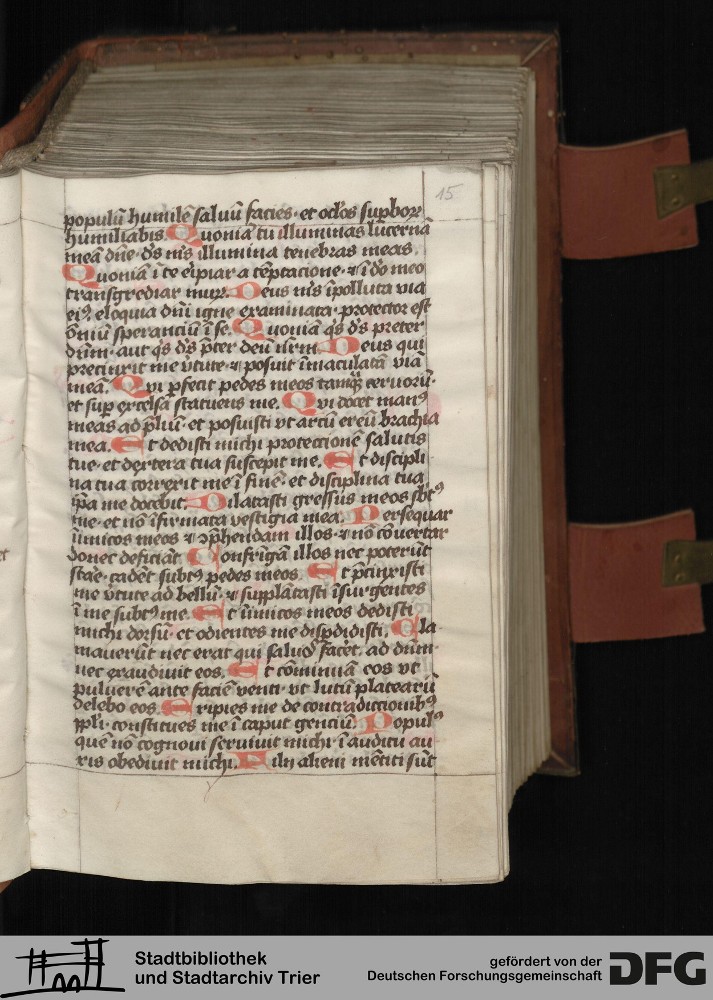 15
populū humilē saluū facies· et oclōs suꝑboꝝ
humiliabis. Quoniā tu illuminas lucernā
meā dn̄e· ds̄ ms̄ illumina tenebras meas.
Quoniā ī te eˈipiar a tēptacione· ⁊ ī dō meo
transgrediar muꝝ. Deus ms̄ īpolluta via
eiꝰ. eloquia dn̄i igne examinata· protector est
ōniū speranciū ī se. Quoniā qˢ dˢ preter
dūm· aut qˢ dˢ p̄ter deū nr̄m. Deus qui
precinxit me v̄tute· ⁊ posuit īmaculatā viā
meā. Qvi ꝑfecit pedes meos tamqͣ ceruorū·
et suꝑ excelsa statuens me. Qvi docet manꝰ
meas ad p̄liū· et posuisti vt arcū ereū brachia
mea. Et dedisti michi protectionē salutis
tue· et dextera tua suscepit me. Et discipli
na tua correxit me ī finē· et disciplina tua
ip̄a me docebit. Dilatasti gressus meos sbtꝰ
me· et nō īfirmata vestigia mea. Persequar
inimicos meos ⁊ ꝯp̄hendam illos· ⁊ nō cōuertar
donec deficiāt. Confrīgā illos nec poterūt
stāe· cadēt subtꝰ pedes meos. Et p̄cinxisti
me v̄tute ad bellū· ⁊ supplātasti īsurgentes
ī me subtꝰ me. Et inimicos meos dedisti
michi dorsū· et odientes me disꝑdidisti. Cla
mauerūt nec erat qui saluoˢ facēt· ad dūm·
nec exaudiuit eos. Et cōminuā eos vt
puluerē ante faciē venti· vt lutū platearū
delebo eos. Eripies me de contradictionibꝰ
ppl̄i· constitues me ī caput genciū. Populꝰ
quē nō cognoui seruiuit michi· ī auditu au
ris obediuit michi. Filii alieni mētiti sūt
Stadtbibliothek
und Stadtarchiv Trier
gefördert von der
Deutschen Forschungsgemeinschaft
DFG